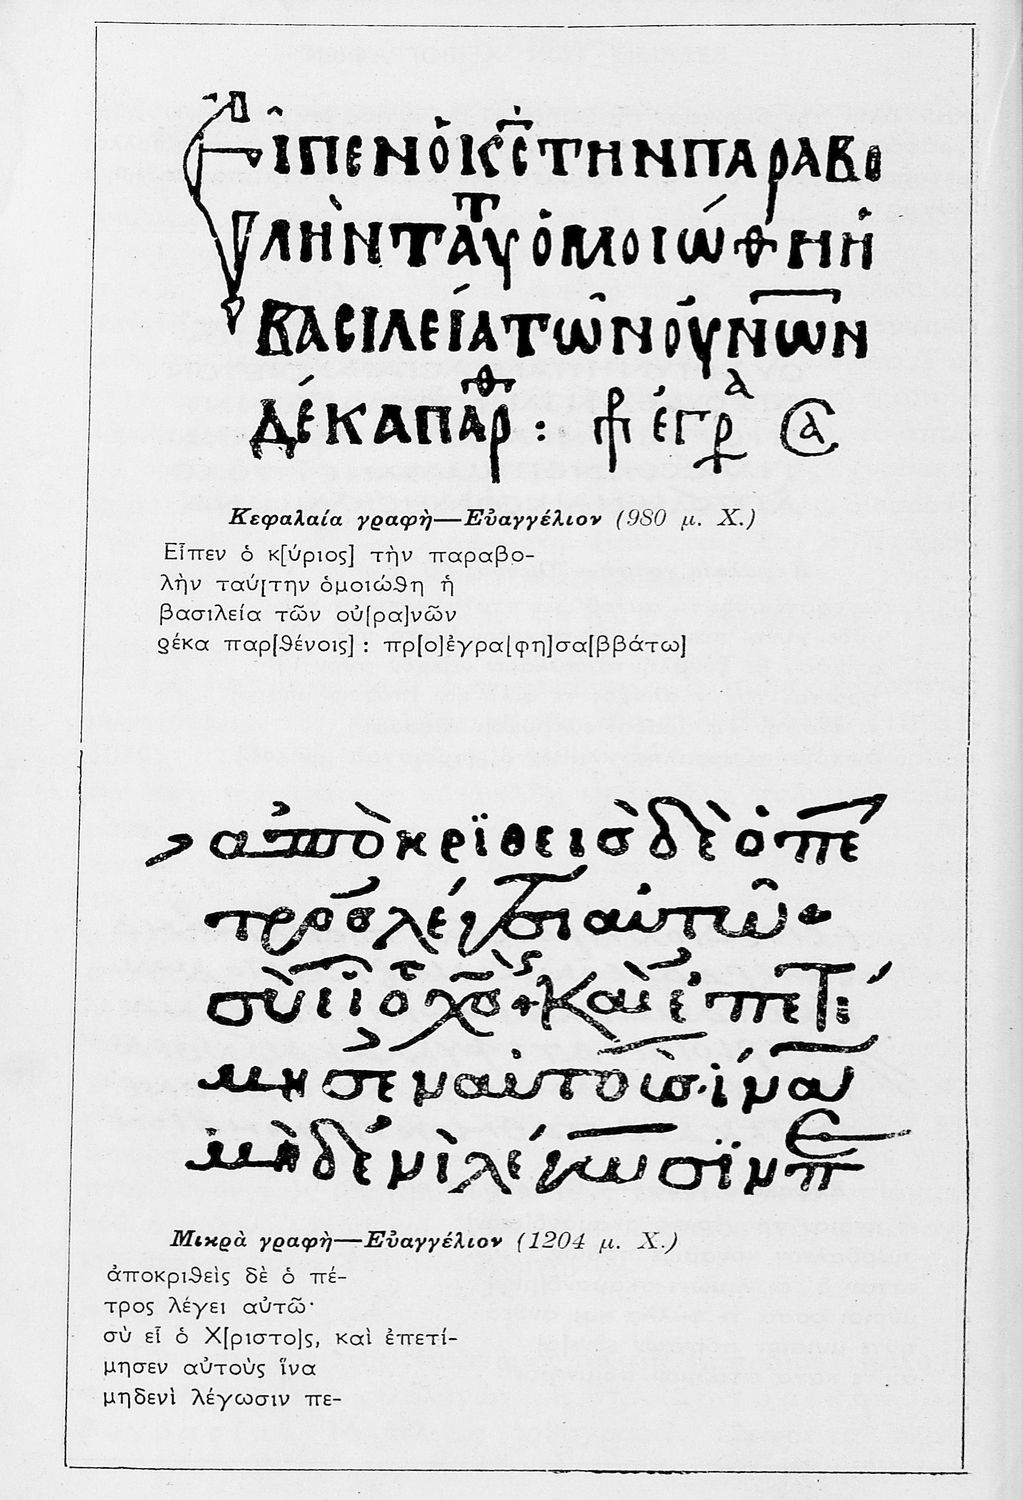 ΕἶΠΕΝ Ὁ Κ̅Ε̅ ΤΗΝ ΠΑΡΑΒΟ
ΛῊΝ ΤΑΥΤ ὉΜΟΙΏΘΗ Ἡ
ΒΑΣΙΛΕΊΑ ΤῶΝ ΟΥ̓ΝῶΝ
ΔΈΚΑ ΠΑΡΘ :
Κεφαλαία γραφὴ—Εὐαγγέλιον (980 μ. Χ.)
Εἶπεν ὁ κ[ύριος] τὴν παραβο-
λὴν ταύ[την ὁμοιώθη ἡ
βασιλεία τῶν οὐ[ρα]νῶν
ϱέκα παρ[θένοις] : πρ[ο]ἐγρα[φη]σα[ββάτω]
ἀποκρϊθεισ δὲ ὁ πέ
τροσ λέγει αὐτῶ·
σὺ εἶ ὁ χσ+ καὶ ἐπετί
μησεν αὐτοῖσ· ἵνα
μὴδενὶ λέγωσϊν πε
Μικρὰ γραφὴ—Εὐαγγέλιον (1204 μ. Χ.)
ἀποκριθεὶς δὲ ὁ πέ-
τρος λέγει αὐτῶ·
σὺ εἶ ὁ Χ[ριστο]ς, καὶ ἐπετί-
μησεν αὐτοὺς ἵνα
μηδενὶ λέγωσιν πε-